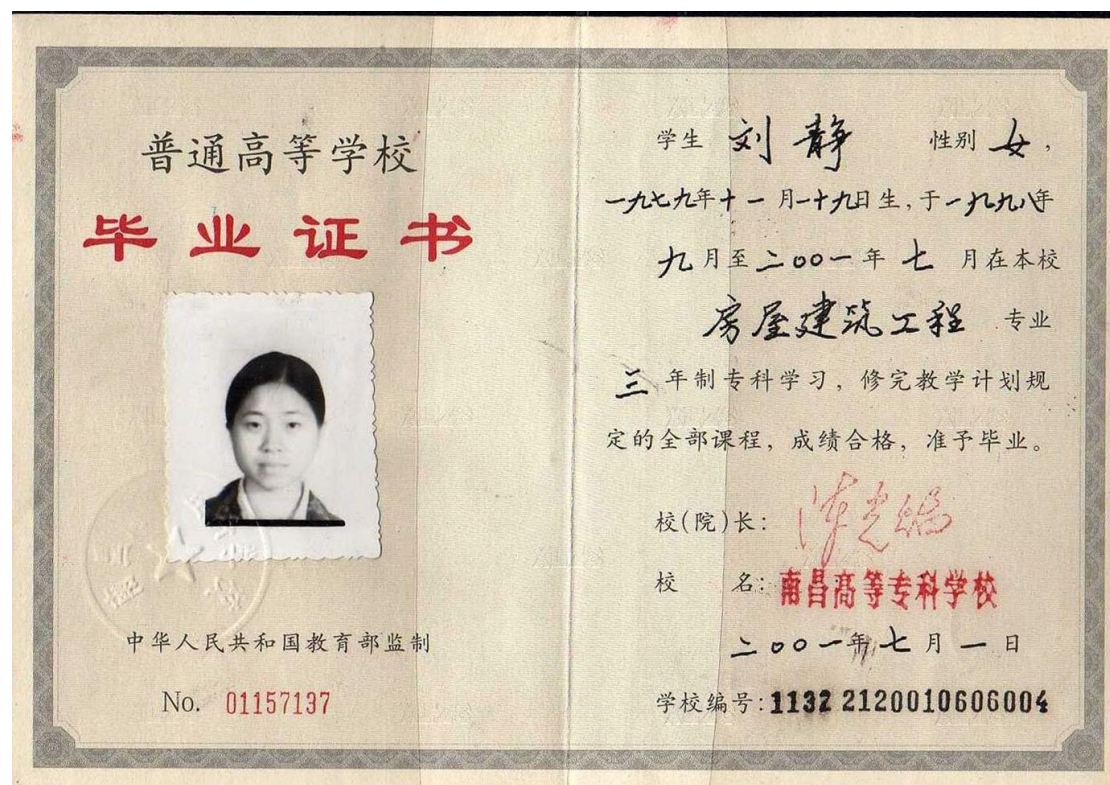 普通高等学校
毕业证书
中华人民共和国教育部监制
No. 01157137
学生 刘静 性别 女，
一九七九年十一月十九日生，于一九九八年
九月至二〇〇一年七月在本校
房屋建筑工程 专业
三年制专科学习，修完教学计划规
定的全部课程，成绩合格，准予毕业。
校(院)长：
校 名：南昌高等专科学校
二〇〇一年七月一日
学校编号：1132 2120010606004